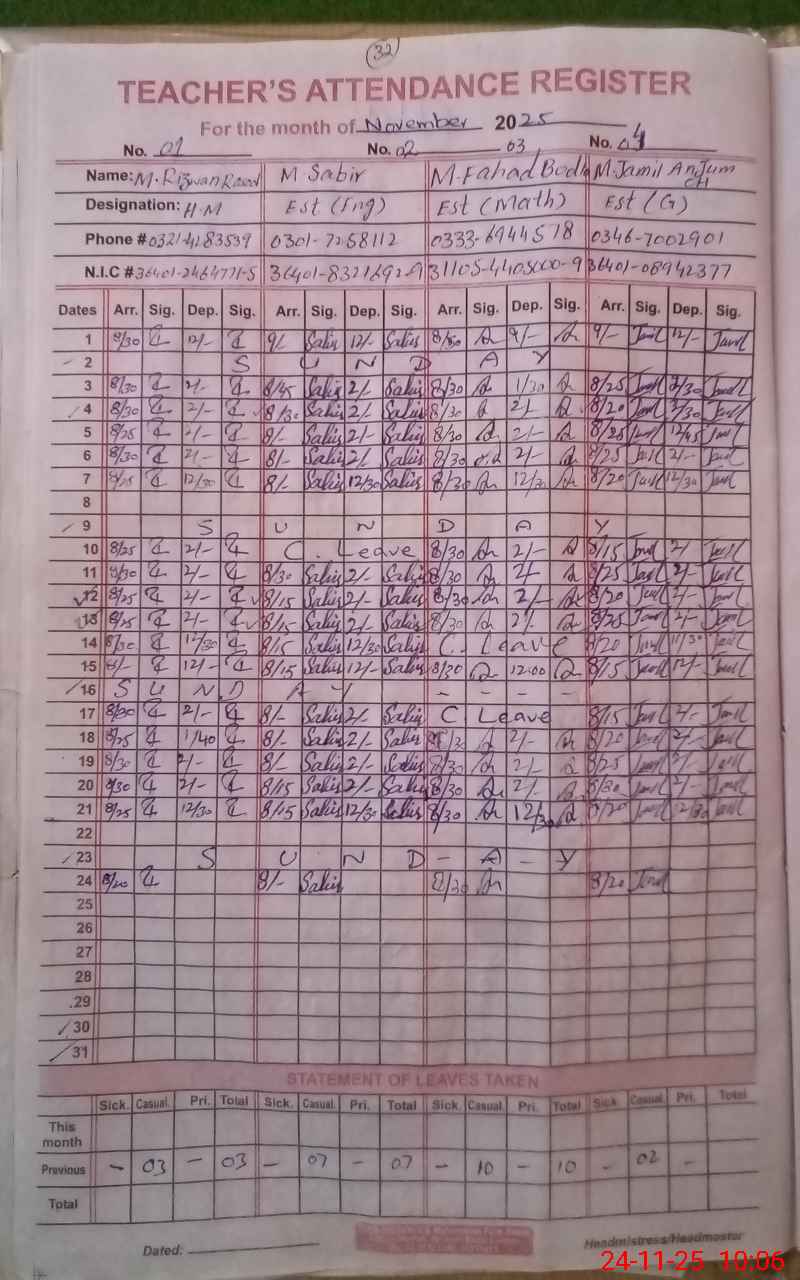 32
TEACHER'S ATTENDANCE REGISTER
For the month of November 2025
No. 01 No. 02 03 No. 04
Name: M. Rizwan M Sabir M. Fahad M. Jamil Anjum
Designation: H.M Est (Eng) Est (Math) Est (G)
Phone # 0321-4283539 0301-7258112 0333-6944518 0346-7002901
N.I.C # 36401-2464771-5 36401-8321692-9 31105-4405000-9 36401-08942377
Dates Arr. Sig. Dep. Sig. Arr. Sig. Dep. Sig. Arr. Sig. Dep. Sig. Arr. Sig. Dep. Sig.
1 8/30 12/- 9/- Sabir 12/- Sabir 8/30 9/- 9/- Jamil 12/- Jamil
2 S U N D A Y
3 8/30 2/- 8/45 Sabir 2/- Sabir 8/30 1/30 8/25 Jamil 2/30 Jamil
4 8/30 2/- 8/30 Sabir 2/- Sabir 8/30 2/- 8/20 Jamil 2/30 Jamil
5 8/25 2/- 8/- Sabir 2/- Sabir 8/30 2/- 8/25 Jamil 12/45 Jamil
6 8/30 2/- 8/- Sabir 2/- Sabir 8/30 2/- 8/25 Jamil 2/- Jamil
7 8/25 12/30 8/- Sabir 12/30 Sabir 8/30 12/30 8/20 Jamil 12/30 Jamil
8
9 S U N D A Y
10 8/25 2/- C. Leave 8/30 2/- 8/15 Jamil 2/- Jamil
11 8/30 2/- 8/30 Sabir 2/- Sabir 8/30 2/- 8/25 Jamil 2/- Jamil
12 8/25 2/- 8/15 Sabir 2/- Sabir 8/30 2/- 8/20 Jamil 2/- Jamil
13 8/25 2/- 8/15 Sabir 2/- Sabir 8/30 2/- 8/25 Jamil 2/- Jamil
14 8/30 12/30 8/15 Sabir 12/30 Sabir C. Leave 8/20 Jamil 11/30 Jamil
15 8/- 12/- 8/15 Sabir 12/- Sabir 8/30 12:00 8/15 Jamil 12/- Jamil
16 S U N D A Y - - - -
17 8/30 2/- 8/- Sabir 2/- Sabir C Leave 8/15 Jamil 2/- Jamil
18 8/25 1/40 8/- Sabir 2/- Sabir 8/30 2/- 8/20 Jamil 2/- Jamil
19 8/30 2/- 8/- Sabir 2/- Sabir 8/30 2/- 8/25 Jamil 2/- Jamil
20 8/30 2/- 8/15 Sabir 2/- Sabir 8/30 2/- 8/30 Jamil 2/- Jamil
21 8/25 12/30 8/15 Sabir 12/30 Sabir 8/30 12/30 8/20 Jamil 12/30 Jamil
22
23 S U N D - A - Y
24 8/20 8/- Sabir 8/30 8/20 Jamil
25
26
27
28
29
30
31
STATEMENT OF LEAVES TAKEN
Sick. Casual. Pri. Total Sick. Casual. Pri. Total Sick. Casual. Pri. Total Sick. Casual. Pri. Total
This month
Previous - 03 - 03 - 07 - 07 - 10 - 10 - 02 -
Total
Dated: Headmistress/Headmaster
24-11-25 10:06